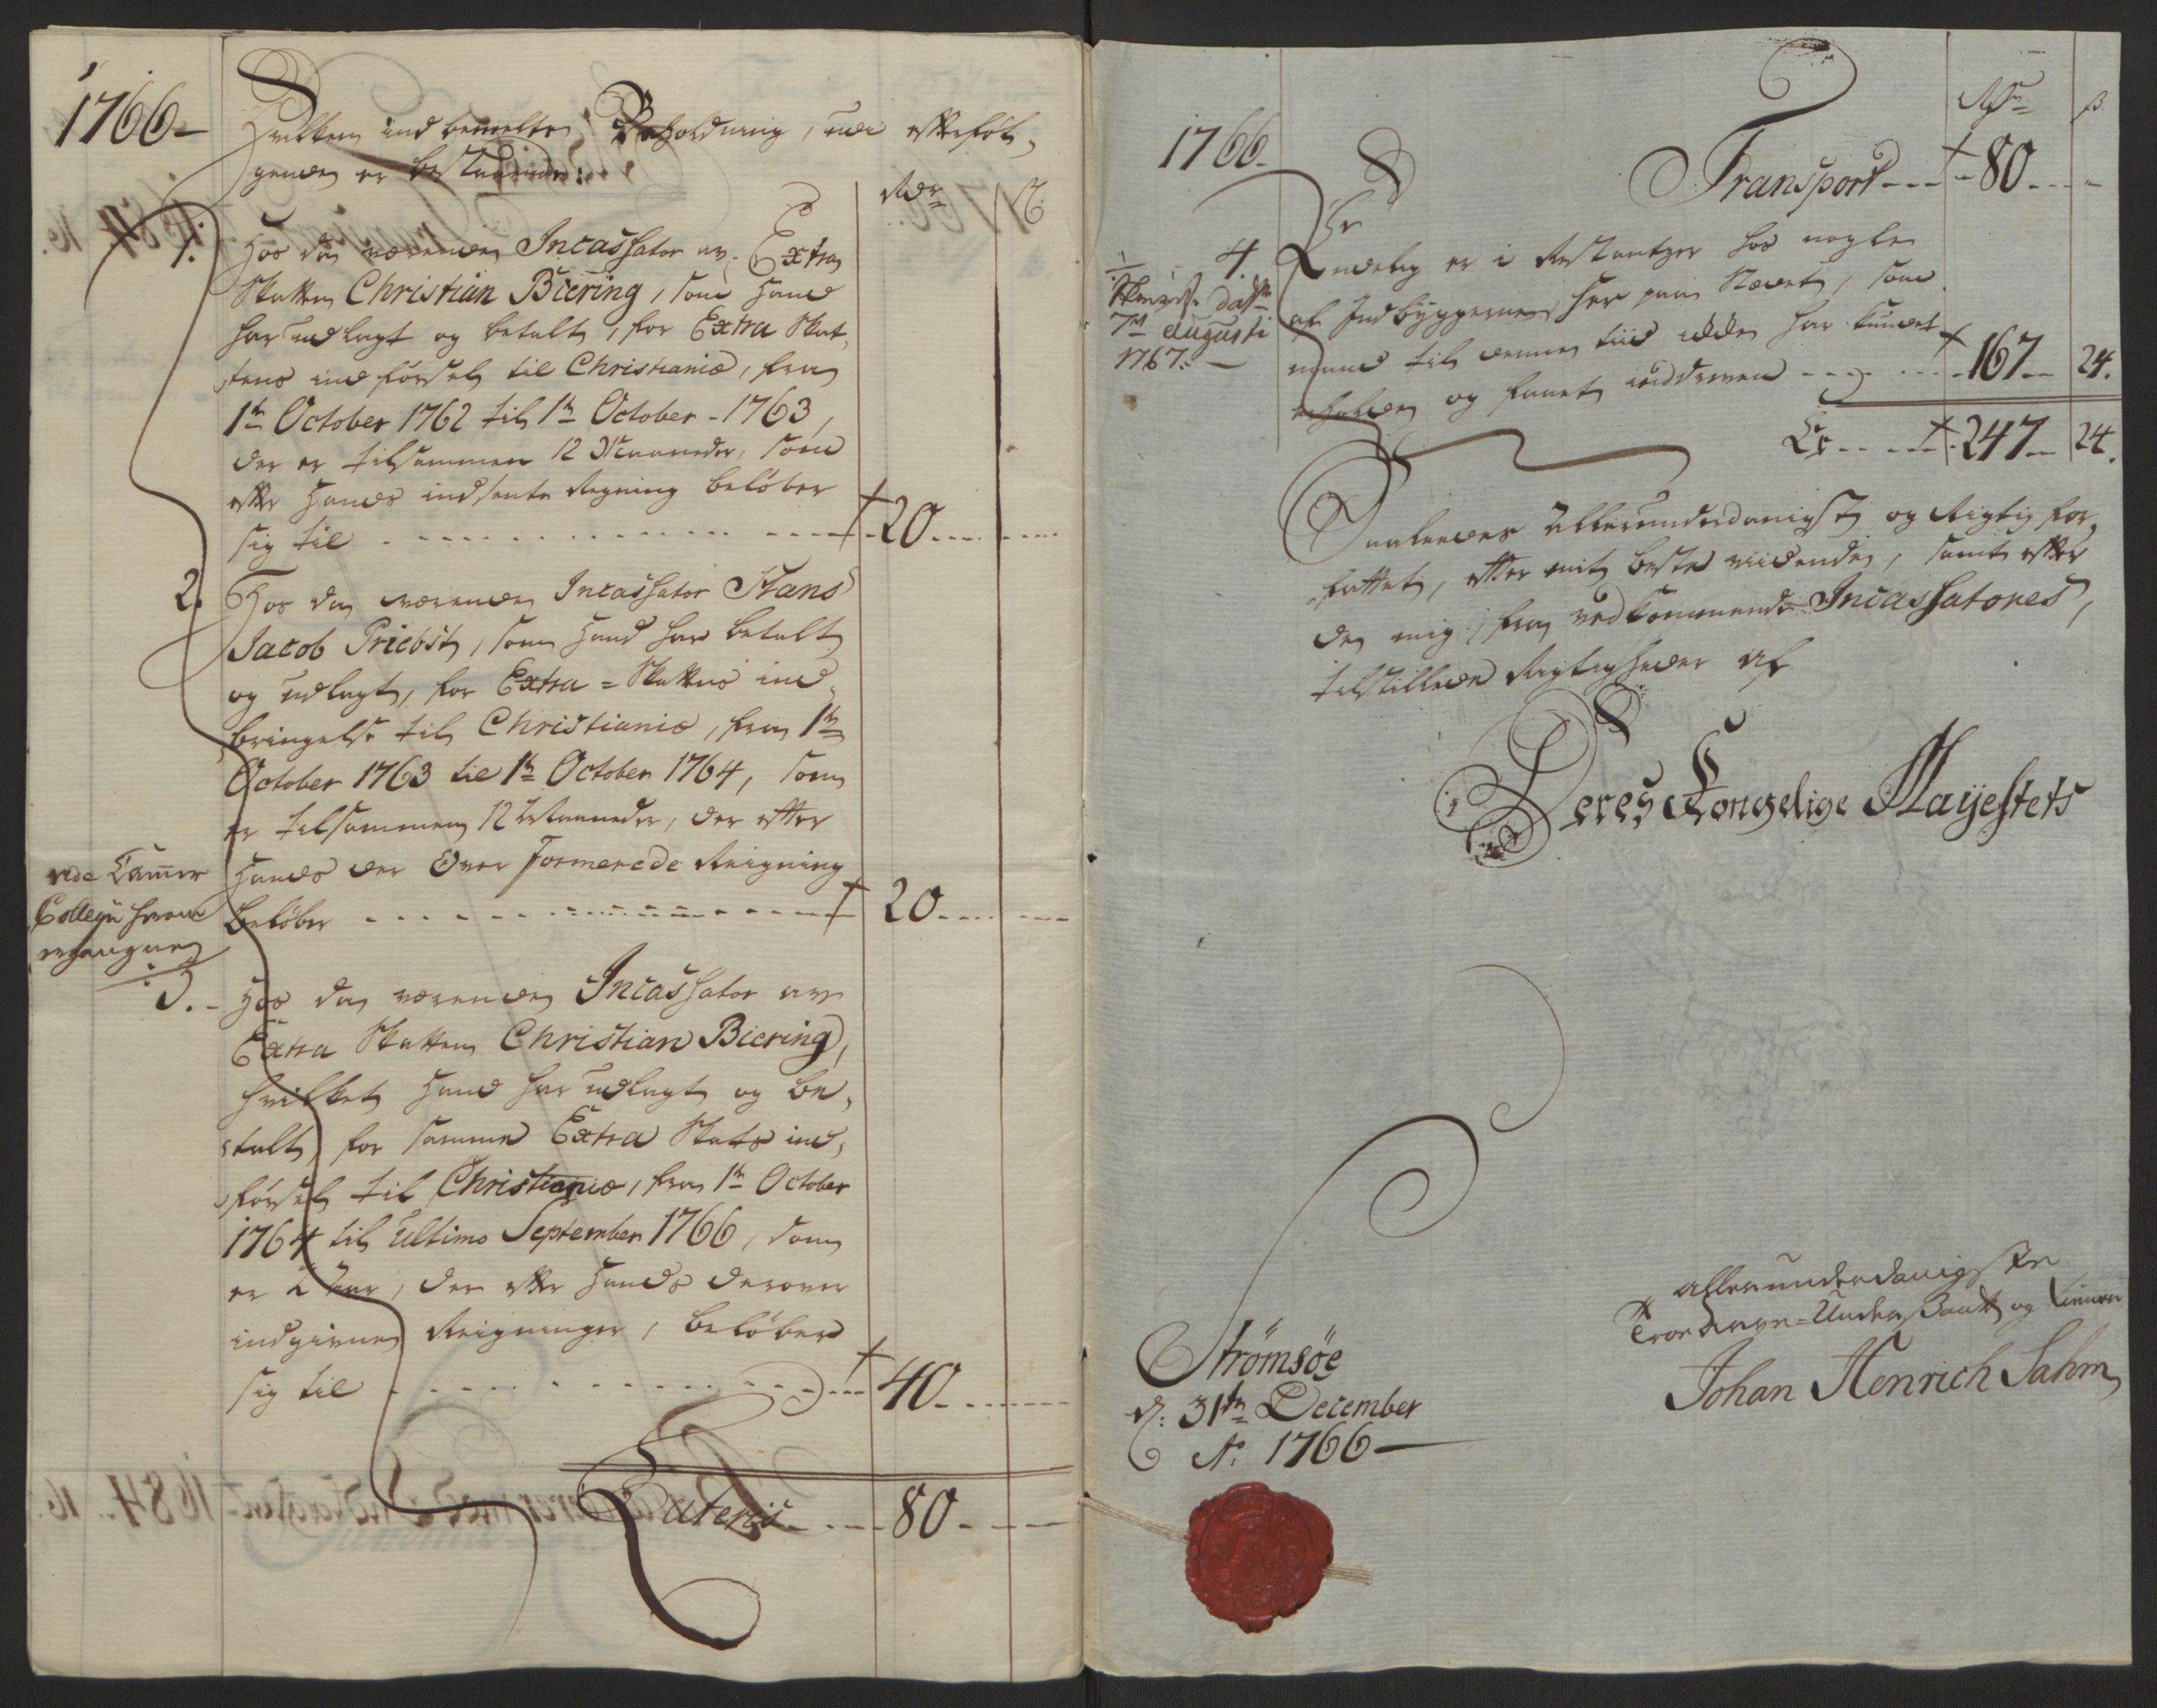 1766
Hvilken ind bemelte Beholdning, udi efterføl-
gende er bestaaende:
Rdr ß
1. Hos da værende Incassator av Extra
Skatten Christian Biering, som Hand
har udlagt og betalt, for Extra Skat-
tens indførsel til Christiania, fra
1te October 1762 til 1te October 1763,
der er tilsammen 12 Maaneder, som
efter Hands indsente Regning beløber
sig til 20
2. Hos da værende Incassator Hans
Jacob Priebst, som Hand har betalt
og udlagt, for Extra-Skattens ind-
bringelse til Christiania, fra 1te
October 1763 til 1te October 1764, som
er tilsammen 12 Maaneder, der efter
Hands der over formerede Reigning
beløber 20
vide Cammer
Collegii
3. Hos da værende Incassator av
Extra Skatten Christian Biering,
hvilket Hand har udlagt og be-
talt, for samme Extra Skats ind-
førsel til Christiania, fra 1te October
1764 til Ultimo September 1766, som
er 2 Aar, der efter Hands derover
indgivne Reigninger, beløber
sig til 40
Lateris 80
1766
Rdr ß
Transport 80
4. Endelig er i Restantzer hos nogle
af Indbyggerne her paa Stædet, som
mand til denne tiid ikke har kundet
erholde og faaet inddreven 167 24.
7de Augusti
1767.
Er 247 24.
Saaledes allerunderdanigst og Rigtig for-
fattet, efter mit beste vidende, samt efter
de mig, fra vedkommende Incassatores,
tilstillede Rigtigheder af
Deres Kongelige Mayestets
allerunderdanigste
troe Arve-Undersaatt og tienere
Johan Henrich Sahm
Strømsøe
d: 31te December
Ao 1766